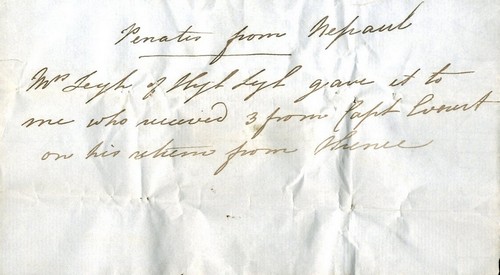 Penates from Nepaul
Mrs Legh of High Legh gave it to
me who received 3 from Capt Everest
on his return from thence